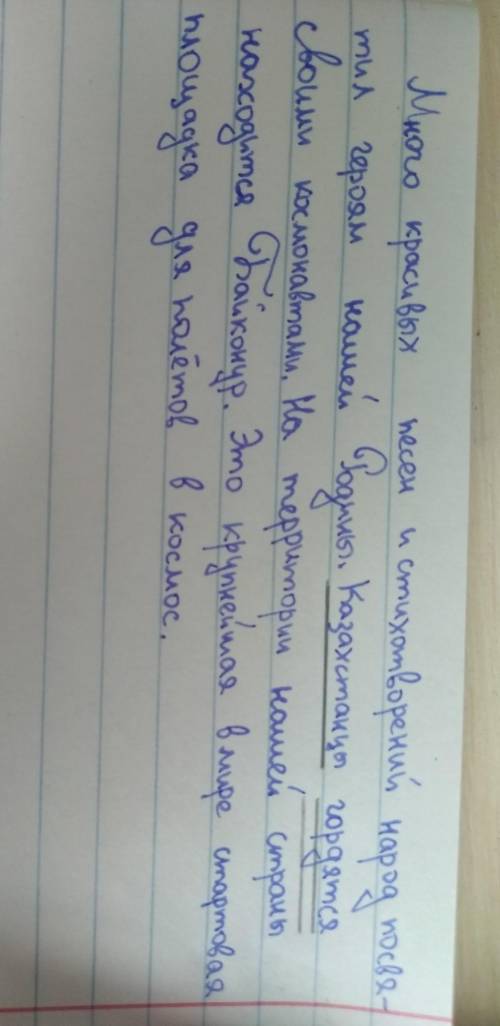 Много красивых песен и стихотворений народ посвя-
тил героям нашей Родины. Казахстанцы гордятся
своими космонавтами. На территории нашей страны
находится Байконур. Это крупнейшая в мире стартовая
площадка для полётов в космос.